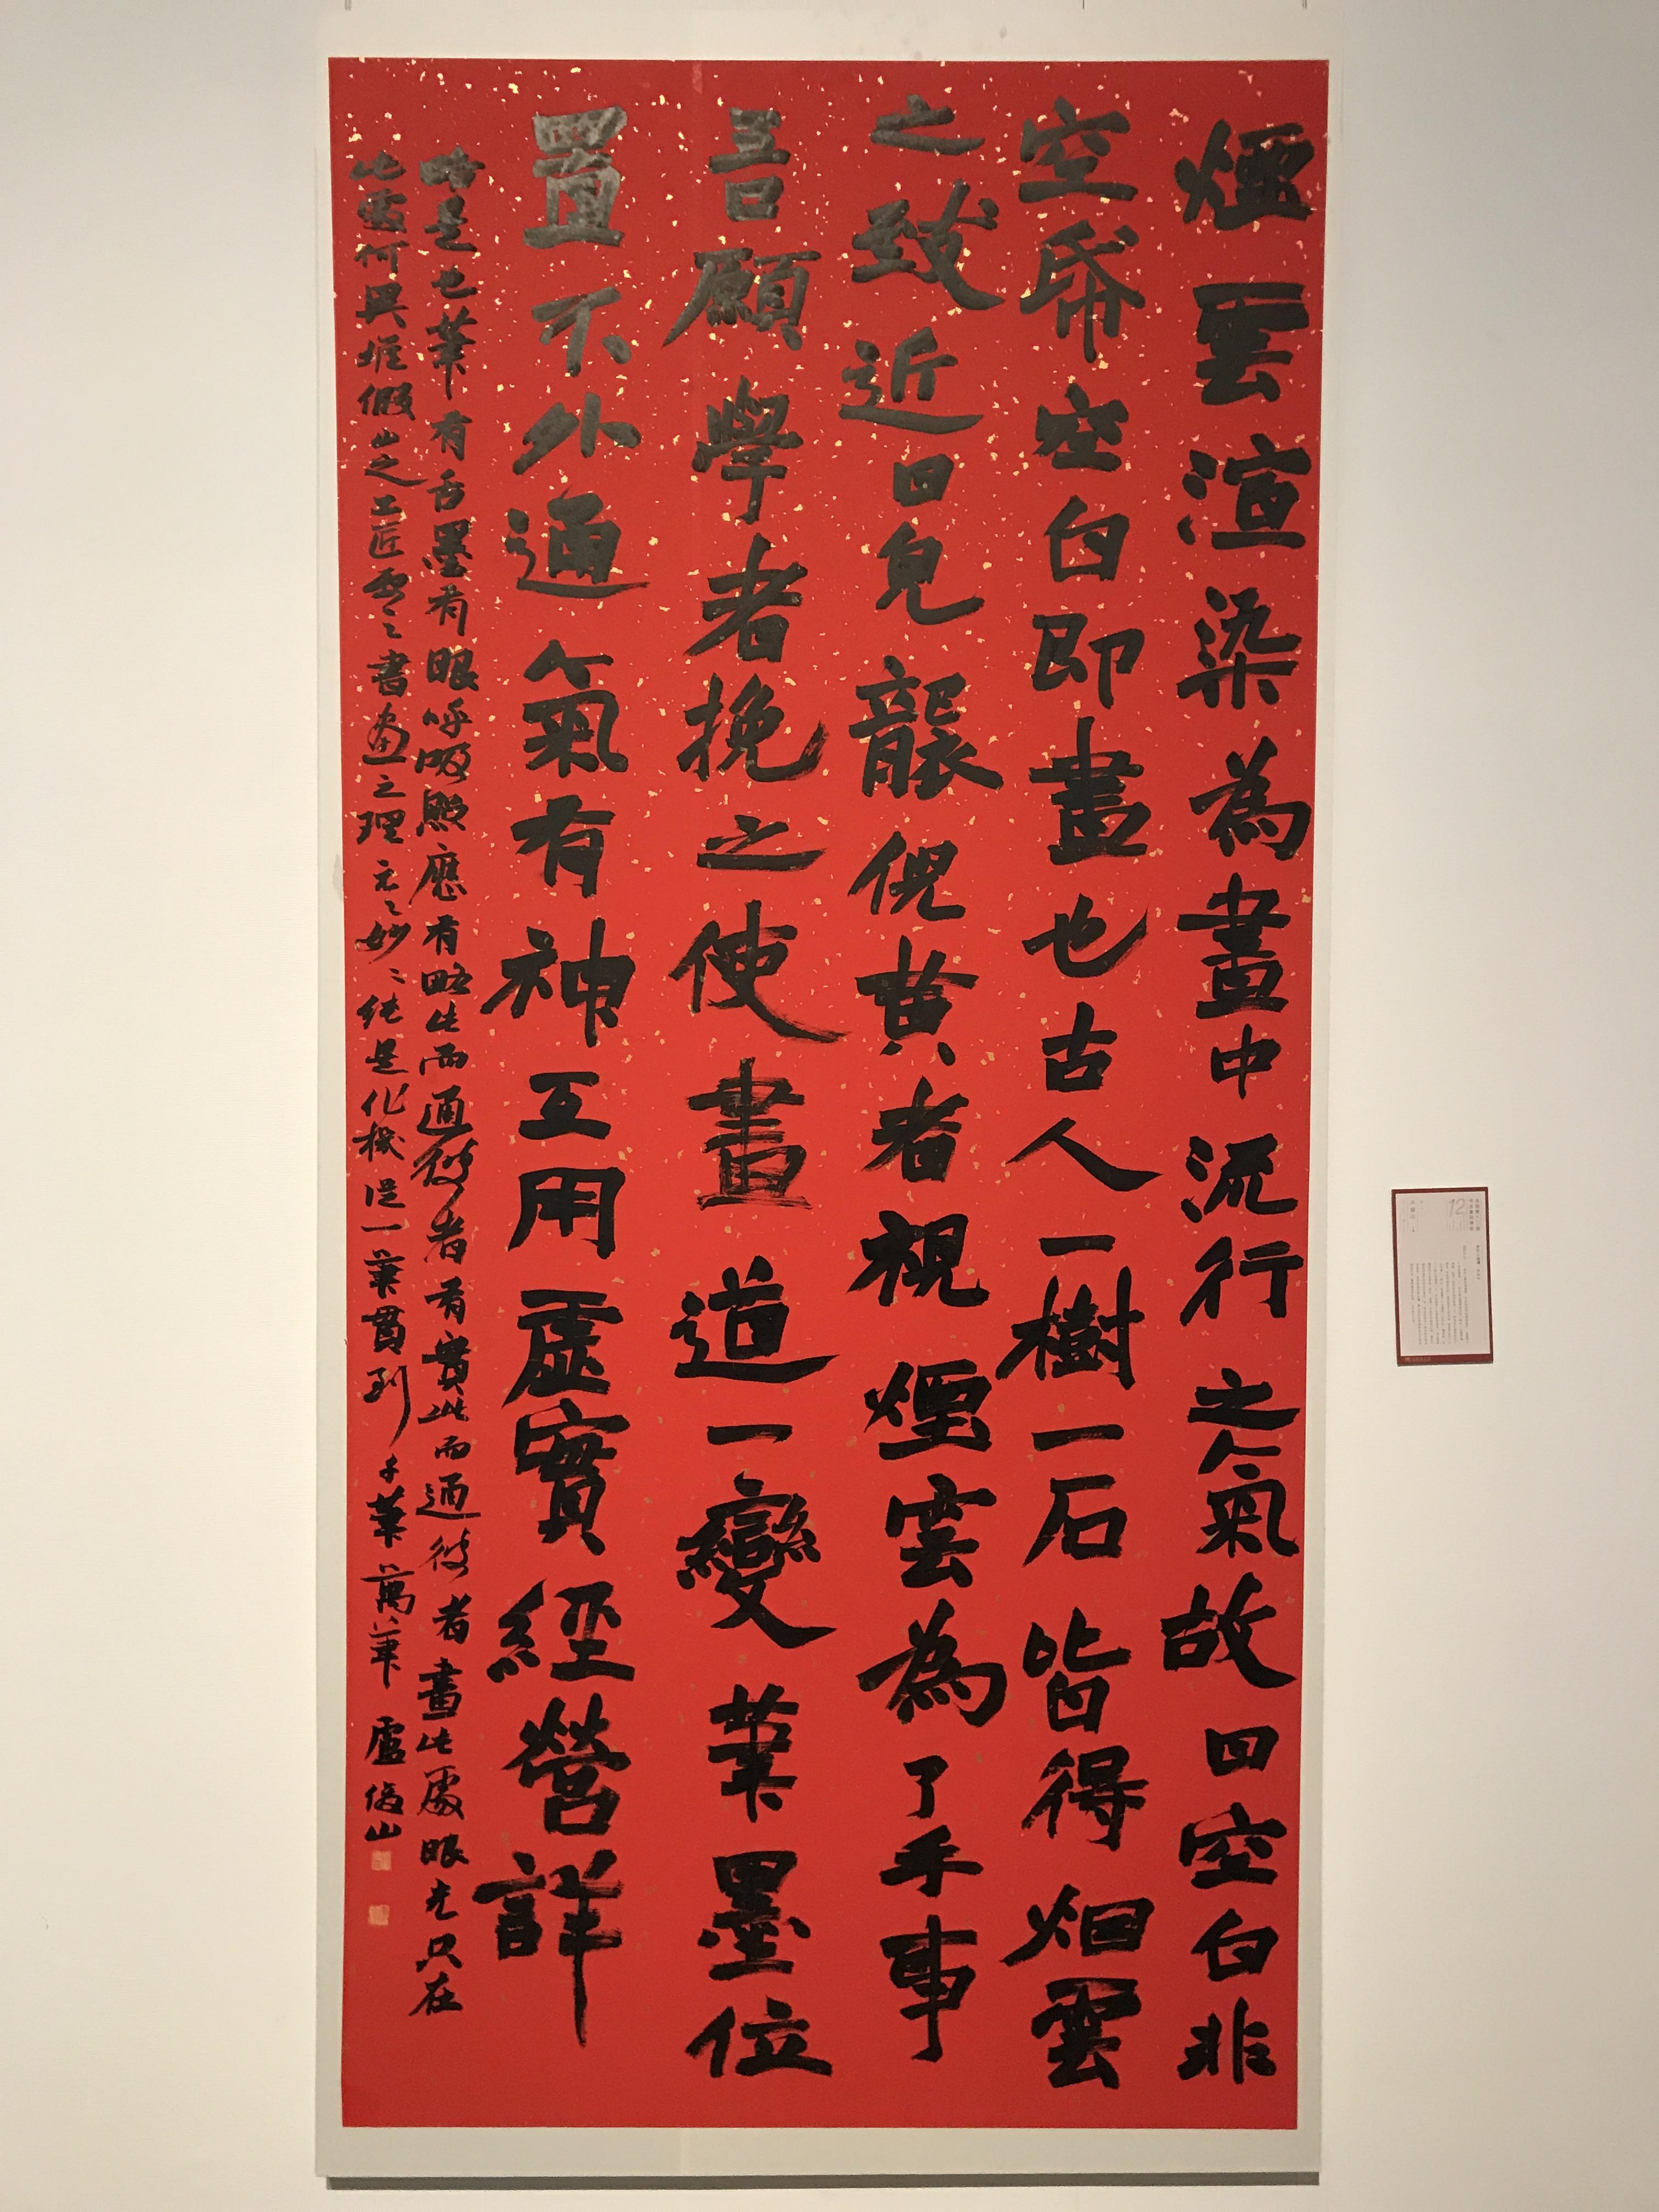 煙雲渲染為畫中流行之氣故曰空白非
空帋空白即畫也古人一樹一石皆得烟雲
之致近日皃襲倪黄者視煙雲為了手事
吾願學者挽之使畫道一變筆墨位
置不外通氣有神工用虛實經營詳
略是也筆有舌墨有眼呼吸照應有略此而通彼者有實此而通彼者畫此處眼光只在
此處何異堆假山之工匠乎書畫之理元元妙妙純是化機從一筆貫到千筆萬筆 盧俊山
12